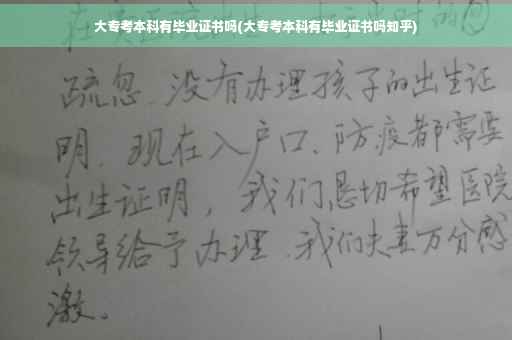 大专考本科有毕业证书吗(大专考本科有毕业证书吗知乎)
疏忽.没有办理孩子的出生证
明.现在入户口、防疫都需要
出生证明，我们恳切希望医院
领导给予办理.我们夫妻万分感
激。